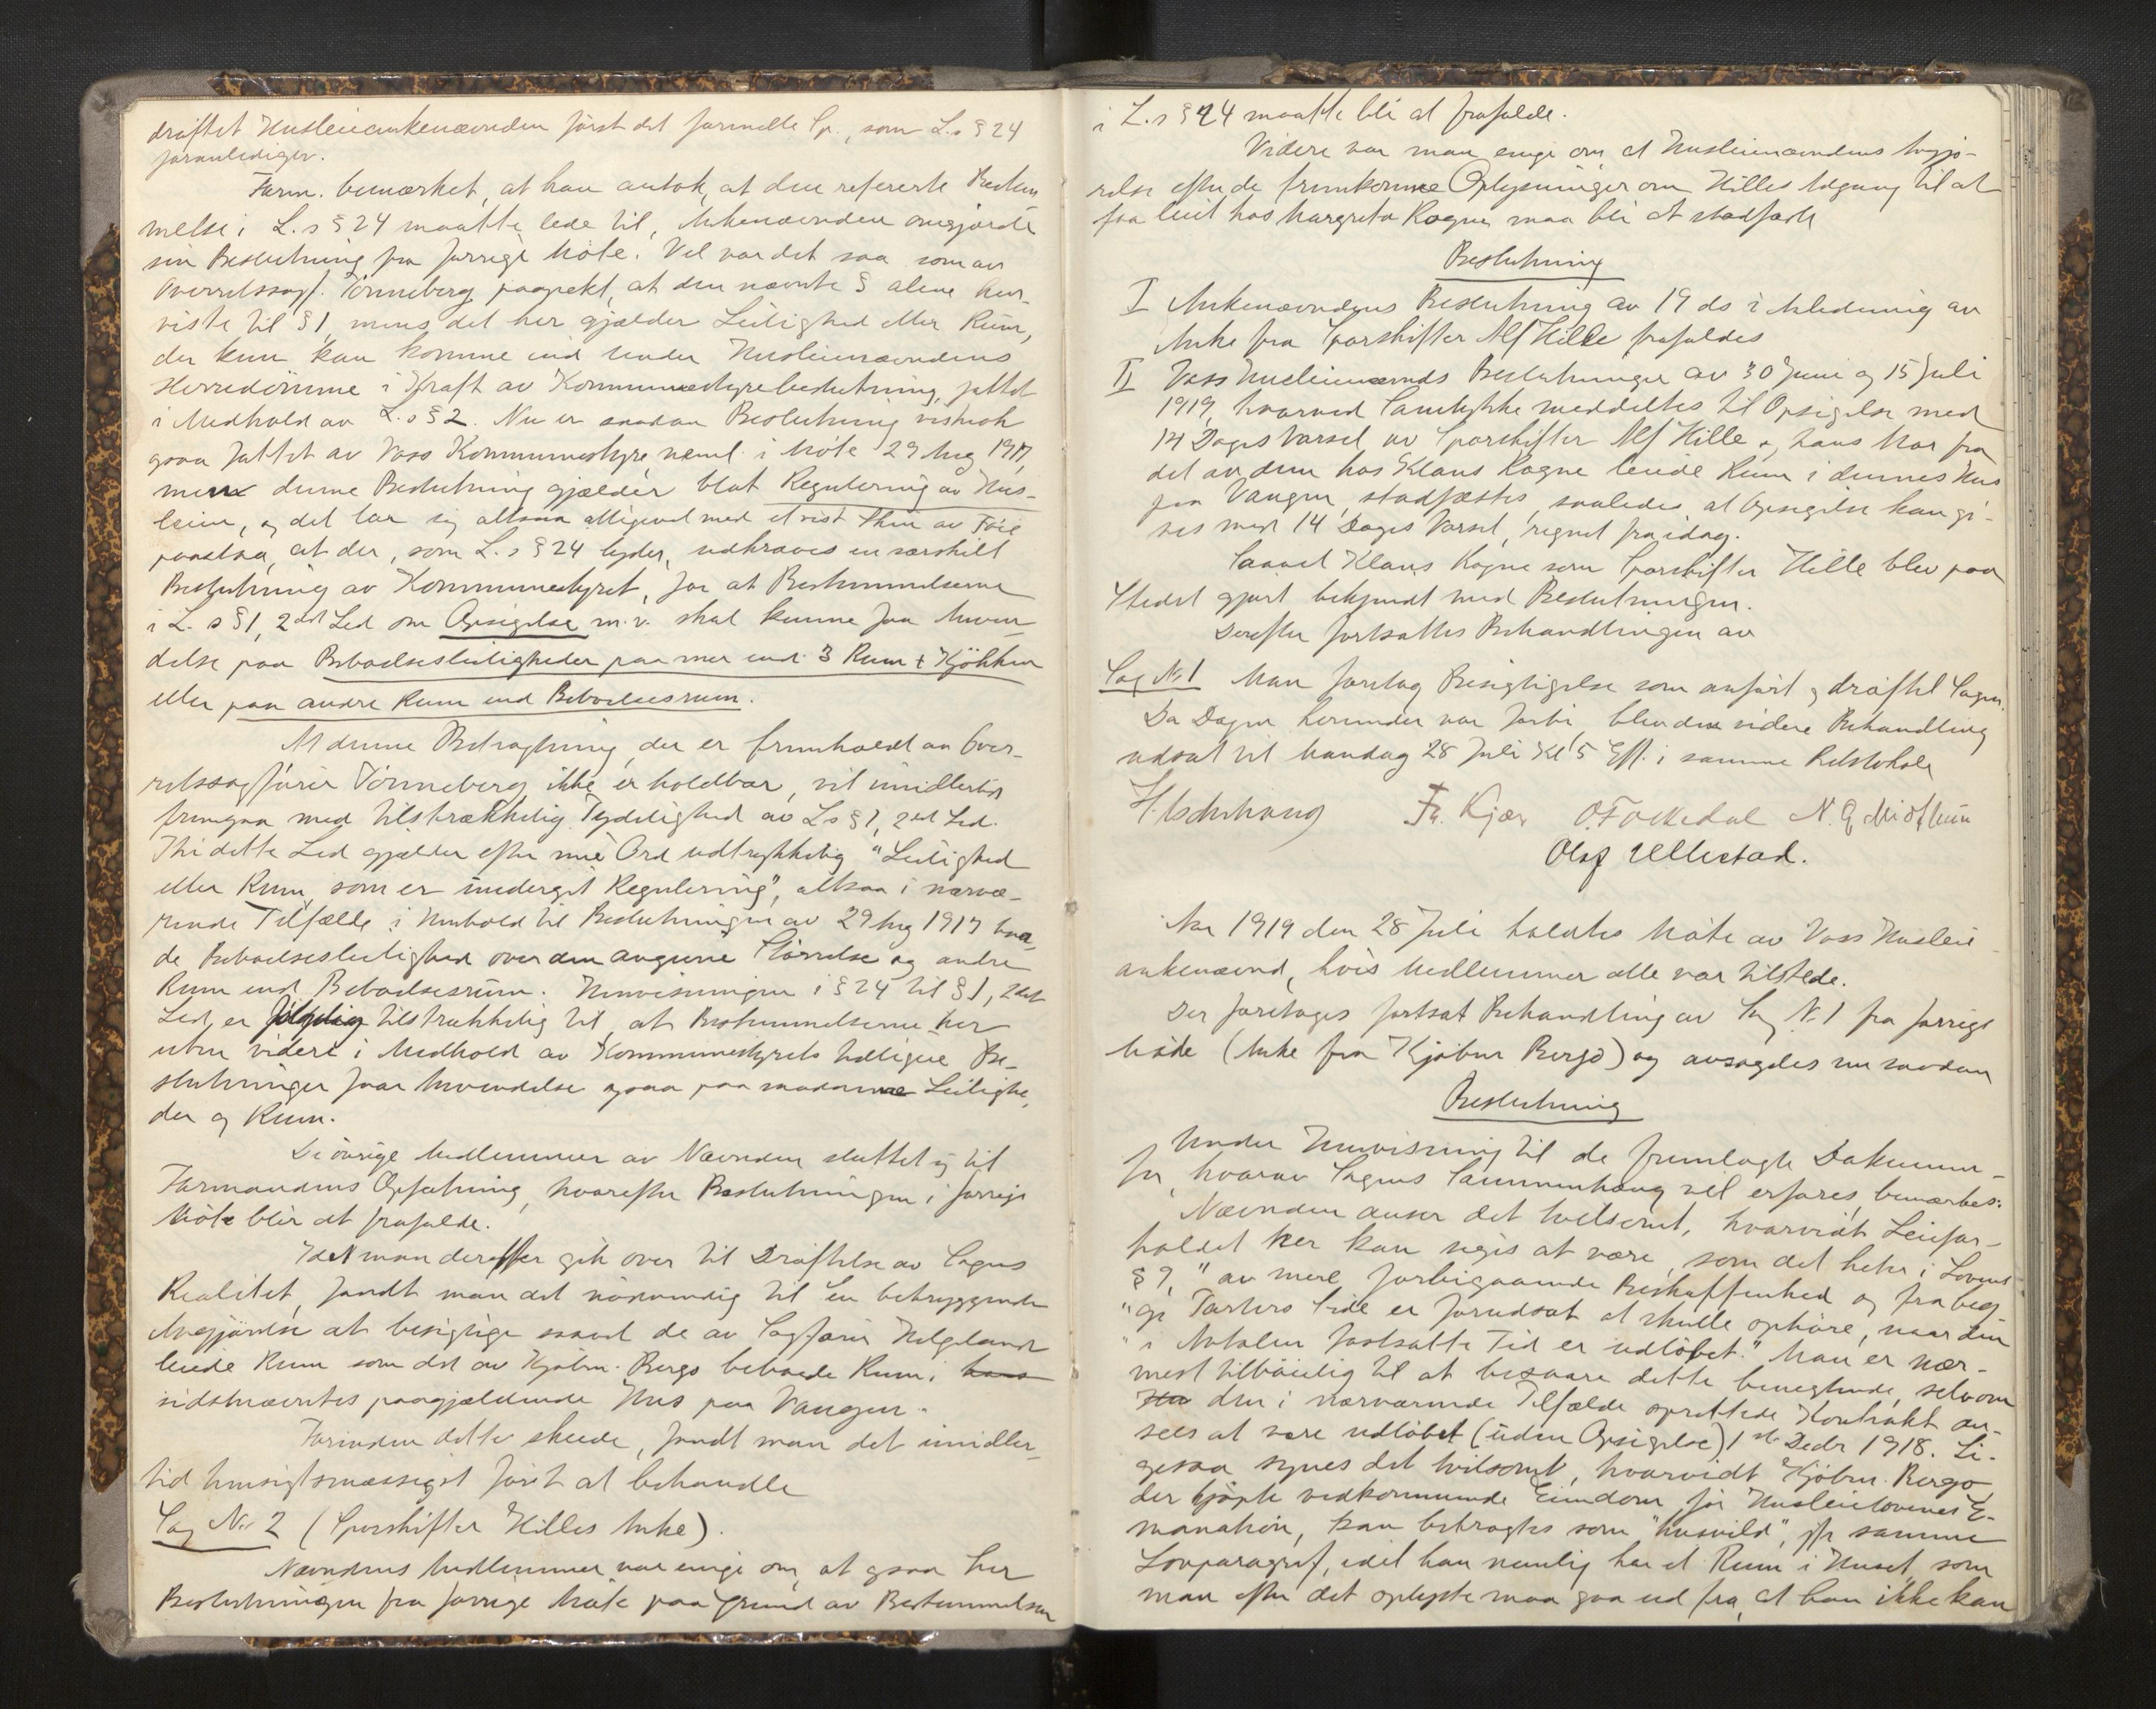 drøftet Husleieankenævnden først det formelle Sp., som L.s § 24
foranlediger.
Form. bemærket, at han antok, at den refererte Bestem
melse i L.s § 24 maatte lede til, Ankenævnden omgjorde
sin Beslutning fra forrige Møte. Vel var det saa som av
Overretssagf. Tønneberg paapekt, at den nævnte § alene hen-
viste til § 1, mens det her gjælder Leilighed eller Rum,
der kun kan komme ind under Husleienævndens
Herredømme i Kraft av Kommunestyrebeslutning, fattet
i Medhold av L.s § 2. Nu er saadan Beslutning vistnok
ogsaa fattet av Voss Kommunestyre, neml. i Møte 29 Aug 1917,
men denne Beslutning gjælder blot Regulering av Hus-
leien, og det lar sig altsaa alligevel med et vist Skin av Føie
paastaa, at der, som L.s § 24 lyder, udkræves en særskilt
Beslutning av Kommunestyret, for at Bestemmelserne
i L.s § 1, 2det Led om Opsigelse m.v. skal kunne faa Anven-
delse paa Beboelsesleiligheder paa mer end 3 Rum + Kjøkken
eller paa andre Rum end Beboelsesrum.
At denne Betragtning, der er fremholdt av Over-
retssagfører Tønneberg ikke er holdbar, vil imidlertid
fremgaa med tilstrækkelig Tydelighed av L.s § 1, 2det Led.
Thi dette Led gjælder efter sine Ord udtrykkelig "Leilighed
eller Rum, som er undergit Regulering", altsaa i nærvæ-
rende Tilfælde i Henhold til Beslutningen av 29 Aug 1917 baa-
de Beboelsesleilighed over den angivne Størrelse og andre
Rum end Beboelsesrum. Henvisningen i § 24 til § 1, 2det
Led, er følgelig tilstrækkelig til, at Bestemmelserne her
uten videre i Medhold av Kommunestyrets tidligere Be-
slutninger faar Anvendelse ogsaa paa saadanne Leilighe-
der og Rum.
De øvrige Medlemmer av Nævnden sluttet sig til
Formandens Opfatning, hvorefter Beslutningen i forrige
Møte blir at frafalde.
Idet man derefter gik over til Drøftelse av Sagens
Realitet, fandt man det nødvendig til en betryggende
Avgjørelse at besigtige saavel de av Sagfører Helgeland
leiede Rum som det av Kjøbm. Bergo beboede Rum i
sidstnævntes paagjældende Hus paa Vangen.
Forinden dette skeede, fandt man det imidler-
tid hensigtsmæssigst først at behandle
Sag No 2 (Sporskifter Hilles Anke).
Nævndens Medlemmer var enige om, at ogsaa her
Beslutningen fra forrige Møte paa Grund av Bestemmelsen
i L.s § 24 maatte bli at frafalde.
Videre var man enige om, at Husleienævndens Avgjø-
relse efter de fremkomne Oplysninger om Hilles Adgang til at
faa leiet hos Margreta Rogne, maa bli at stadfæste
Beslutning
I Ankenævndens Beslutning av 19 ds i Anledning av
Anke fra Sporskifter Alf Hille frafaldes
II Voss Husleienævnds Beslutninger av 30 Juni og 15 Juli
1919, hvorved Samtykke meddeltes til Opsigelse med
14 Dages Varsel av Sporskifter Alf Hille og hans Mor fra
det av dem hos Klaus Rogne leiede Rum i dennes Hus
paa Vangen, stadfæstes, saaledes at Opsigelse kan gi-
ves med 14 Dages Varsel, regnet fra idag.
Saavel Klaus Rogne som Sporskifter Hille blev paa
Stedet gjort bekjendt med Beslutningen.
Derefter fortsattes Behandlingen av
Sag No 1 Man foretog Besigtigelse som anført og drøftet Sagen.
Da Dagen herunder var forbi blev den videre Behandling
udsat til Mandag 28 Juli Kl 5 Eft. i samme Retslokale
Fr. Kjær O. Fokkedal N. G. Midthun
Olaf Ullestad.
Aar 1919 den 28 Juli holdtes Møte av Voss Husleie
ankenævnd, hvis Medlemmer alle var tilstede.
Der foretages fortsat Behandling av Sag No 1 fra forrige
Møde (Anke fra Kjøbm Bergo) og avsagdes nu saadan
Beslutning
Under Henvisning til de fremlagte Dokumen-
ter, hvorav Sagens Sammenhæng vil erfares, bemærkes:
Nævnden anser det tvilsomt, hvorvidt Leiefor-
holdet her kan siges at være, som det heter i Lovens
§ 9, "av mere forbigaaende Beskaffenhed og fra beg
"ge Parters Side er forudsat at skulle ophøre, naar den
"i Avtalen fastsatte Tid er udløbet." Man er nær-
mest tilbøielig til at besvare dette benegtende, selv om
den i nærværende Tilfælde oprettede Kontrakt an-
sees at være udløbet (uden Opsigelse) 1ste Decbr 1918. Li-
gesaa synes det tvilsomt, hvorvidt Kjøbm. Bergo,
der kjøpte vedkommende Eiendom før Husleielovens E-
manation, kan betragtes som "husvild", jfr samme
Lovparagraf, idet han nemlig har et Rum i Huset, som
man efter det oplyste maa gaa ud fra, at han ikke kan